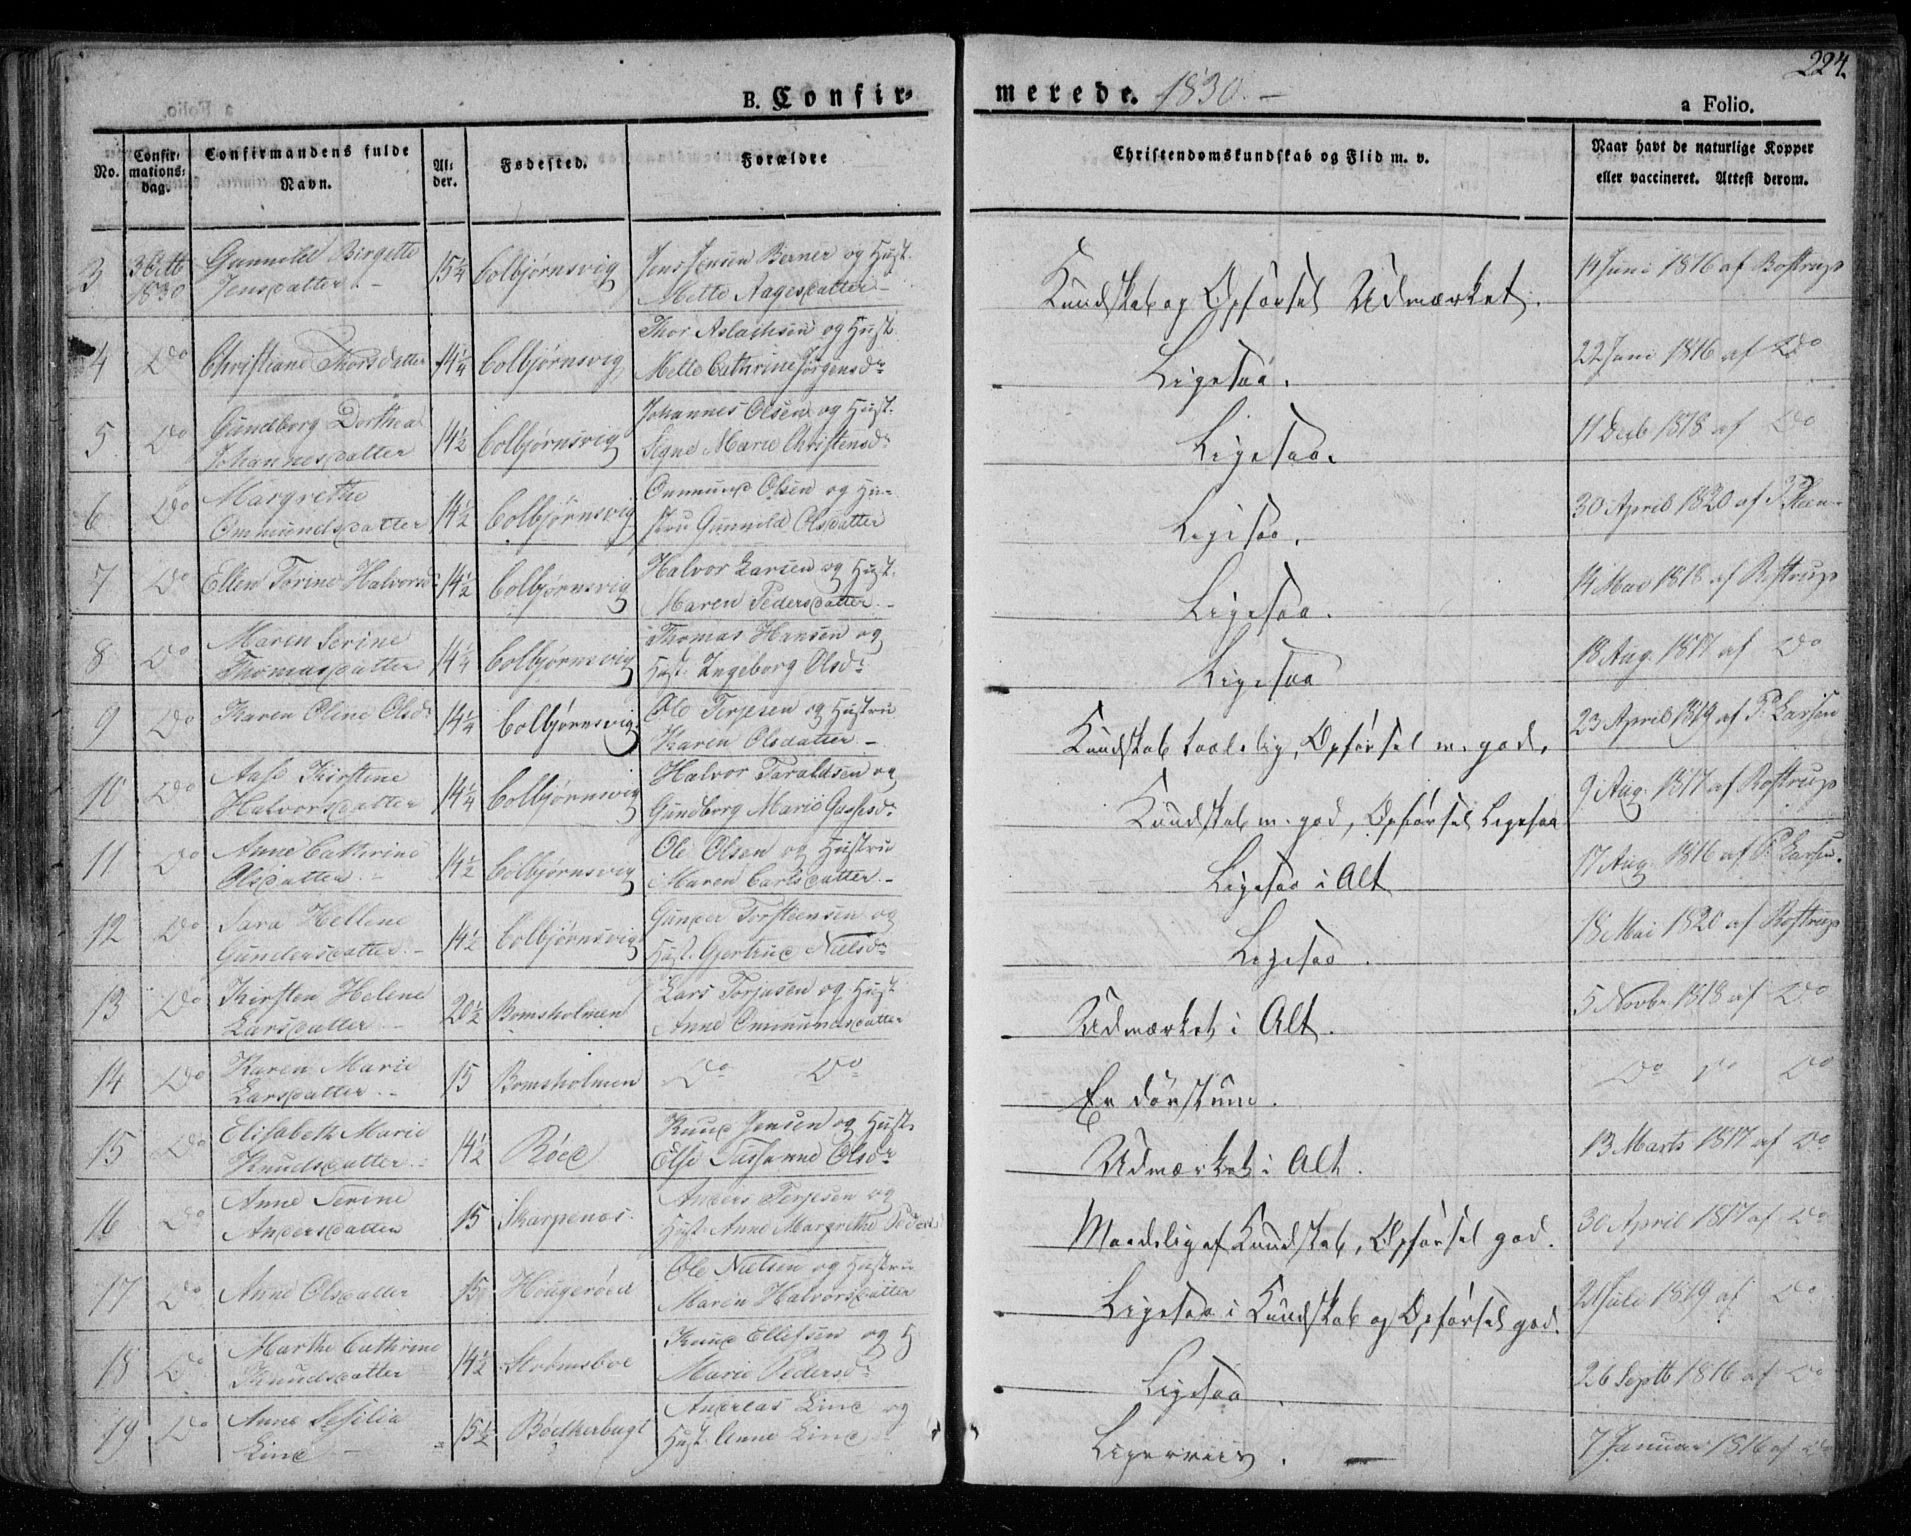 224.
B. Confirmerede. 1830.-
a Folio.
No. Confirmations-dag. Confirmandens fulde Navn. Alder. Fødested. Forældre Christendomskundskab og Flid m. v. Naar havt de naturlige Kopper eller vaccineret. Attest derom.
3 3 Octb 1830 Gunnild Birgette Jensdatter.- 15 1/4 Colbjørnsvig Jens Jensen Berner og Hust. Mette Aagesdatter- Kundskab og Opførsel Udmærket. 14 Juni 1816 af Rostrup
4 Do Christiane Thorsdatter 14 1/4 Colbjørnsvig Thor Aslachsen og Hust. Mette Cathrine Jørgensdr Ligesaa. 22 Juni 1816 af Do
5 Do Gundborg Dorthea Johannesdatter 14 1/2 Colbjørnsvig Johannes Olsen og Hust. Signe Marie Christensdr Ligesaa. 11 Decb 1818 af Do
6 Do Margrethe Ommundsdatter 14 1/2 Colbjørnsvig Ommund Olsen og Hustru Gunnild Olsdatter Ligesaa. 30 April 1820 af
7 Do Ellen Torine Halvorsd: 14 1/2 Colbjørnsvig Halvor Larsen og Hust. Maren Pedersdatter.- Ligesaa. 14 Mai 1818 af Rostrup
8 Do Maren Serine Thomasdatter 14 1/4 Colbjørnsvig Thomas Hansen og Hust. Ingeborg Olsdr Ligesaa 18 Aug. 1817 af Do
9 Do Karen Oline Olsdr 14 1/4 Colbjørnsvig Ole Terjesen og Hustru Karen Olsdatter- Kundskab taalelig, Opførsel m. god. 23 April 1819 af P. Larsen
10 Do Aase Kirstine Halvorsdatter 14 1/4 Colbjørnsvig Halvor Taraldsen og Gundborg Marie Kundskab m. god, Opførsel Ligesaa 9 Aug. 1817 af Rostrup
11 Do Anne Cathrine Olsdatter.- 14 1/2 Colbjørnsvig Ole Olsen og Hustru Maren Carlsdatter.- Ligesaa i Alt 17 Aug. 1816 af P. Larsen.
12 Do Sara Hellene Gundersdatter.- 14 1/2 Colbjørnsvig Gunder Torsteensen og Hust. Gjertrud Nielsdr Ligesaa. 18 Mai 1820 af Rostrup
13 Do Kirsten Helene Larsdatter.- 20 1/2 Bomsholmen Lars Torjusen og Hust Anne Ommundsdatter Udmærket i Alt. 5 Novbr 1818 af Do
14 Do Karen Marie Larsdatter.- 15 Bomsholmen Do Do Do Do Do
15 Do Elisabeth Marie Knudsdatter.- 14 1/2 Røed Knud Jensen og Hust. Else Susanne Olsdr Udmærket i Alt. 13 Marts 1817 af Do
16 Do Anne Serine Andersdatter 15 Skarpenæs. Anders Terjesen og Hust. Anne Margrethe Maadelig af Kundskab, Opførsel god. 30 April 1817 af Do
17 Do Anne Olsdatter 15 Hougerøed Ole Nielsen og Hustru Maren Halvorsdatter Ligesaa i Kundskab og Opførsel god. 21 Juli 1819 af Do
18 Do Marthe Cathrine Knudsdatter 14 1/2 Strømsboe Knud Ellefsen og H Marie Pedersdr Ligesaa. 26 Septb 1816 af Do
19 Do Anne Sesilia Lind.- 15 1/2 Bødkerbugt Andreas Lind og Hust. Anne Lind 7 Januar 1816 af Do